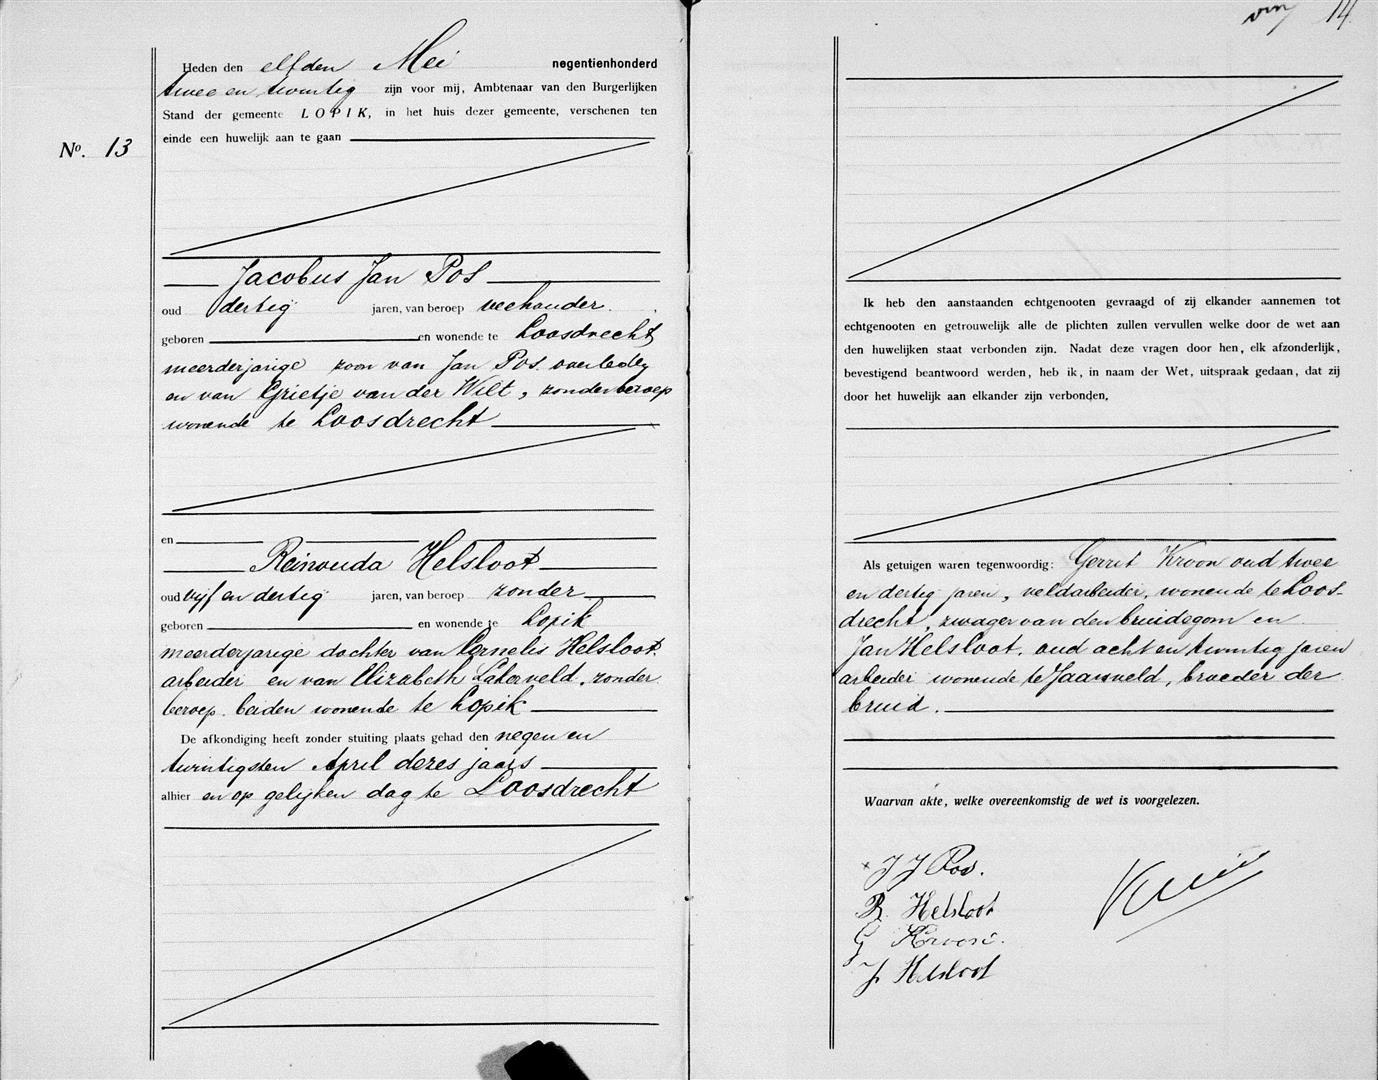 Heden den elfden Mei negentienhonderd
twee en twintig zijn voor mij, Ambtenaar van den Burgerlijken
Stand der gemeente LOPIK, in het huis dezer gemeente, verschenen ten
einde een huwelijk aan te gaan
No. 13
Jacobus Jan Pos
oud dertig jaren, van beroep veehouder
geboren en wonende te Loosdrecht
meerderjarige zoon van Jan Pos overleden
en van Grietje van der Wilt, zonder beroep
wonende te Loosdrecht
en
Reinouda Helsloot
oud vijf en dertig jaren, van beroep zonder
geboren en wonende te Lopik
meerderjarige dochter van Cornelis Helsloot,
arbeider en van Elizabeth Laterveld, zonder
beroep beiden wonende te Lopik
De afkondiging heeft zonder stuiting plaats gehad den negen en
twintigsten April dezes jaars
alhier en op gelijken dag te Loosdrecht
14
Ik heb den aanstaanden echtgenooten gevraagd of zij elkander aannemen tot
echtgenooten en getrouwelijk alle de plichten zullen vervullen welke door de wet aan
den huwelijken staat verbonden zijn. Nadat deze vragen door hen, elk afzonderlijk,
bevestigend beantwoord werden, heb ik, in naam der Wet, uitspraak gedaan, dat zij
door het huwelijk aan elkander zijn verbonden.
Als getuigen waren tegenwoordig: Gerrit Kroon oud twee
en dertig jaren, veldarbeider, wonende te Loos-
drecht, zwager van den bruidegom en
Jan Helsloot, oud acht en twintig jaren
arbeider wonende te Jaarsveld, broeder der
bruid.
Waarvan akte, welke overeenkomstig de wet is voorgelezen.
J J Pos.
R. Helsloot
G Kroon.
J. Helsloot